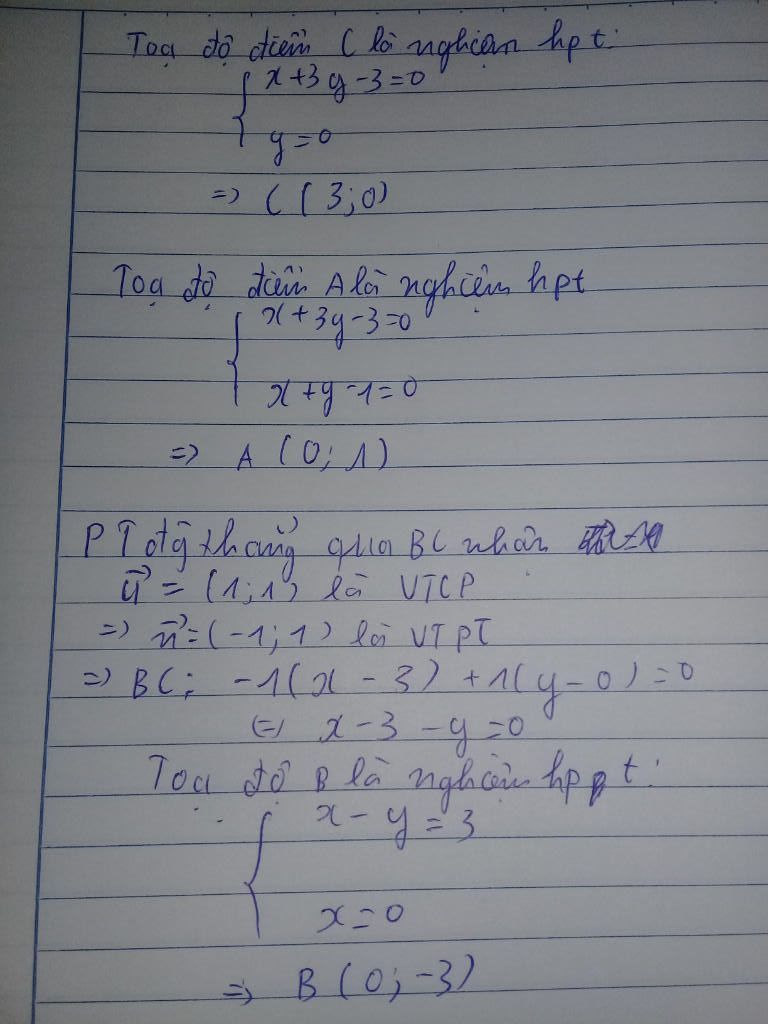 Toạ độ điểm C là nghiệm hpt:
x+3y-3=0
y=0
=> C(3;0)
Toạ độ điểm A là nghiệm hpt
x+3y-3=0
x+y-1=0
=> A(0;1)
PT đg thẳng qua BC nhận
u⃗ = (1;1) là VTCP
=> n⃗ = (-1;1) là VTPT
=> BC: -1(x-3)+1(y-0)=0
(=) x-3-y=0
Toạ độ B là nghiệm hpt:
x-y=3
x=0
=> B(0;-3)